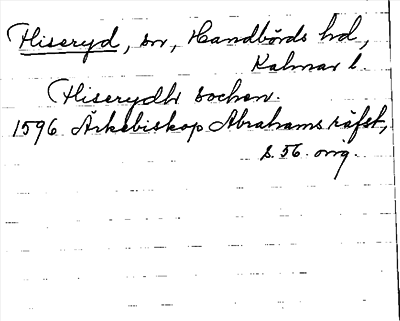 Hiseryd, sn, Handbörds hd,
Kalmar l.
Hiserydh sochen.
1596 Ärkebiskop Abrahams räfst,
s. 56. orig.